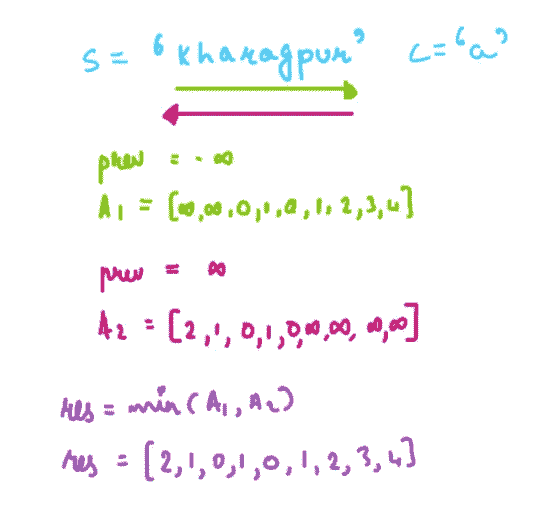 S = 'kharagpur' C='a'
prev = -∞
A1 = [∞,∞,0,1,0,1,2,3,4]
prev = ∞
A2 = [2,1,0,1,0,∞,∞,∞,∞]
res = min(A1, A2)
res = [2,1,0,1,0,1,2,3,4]